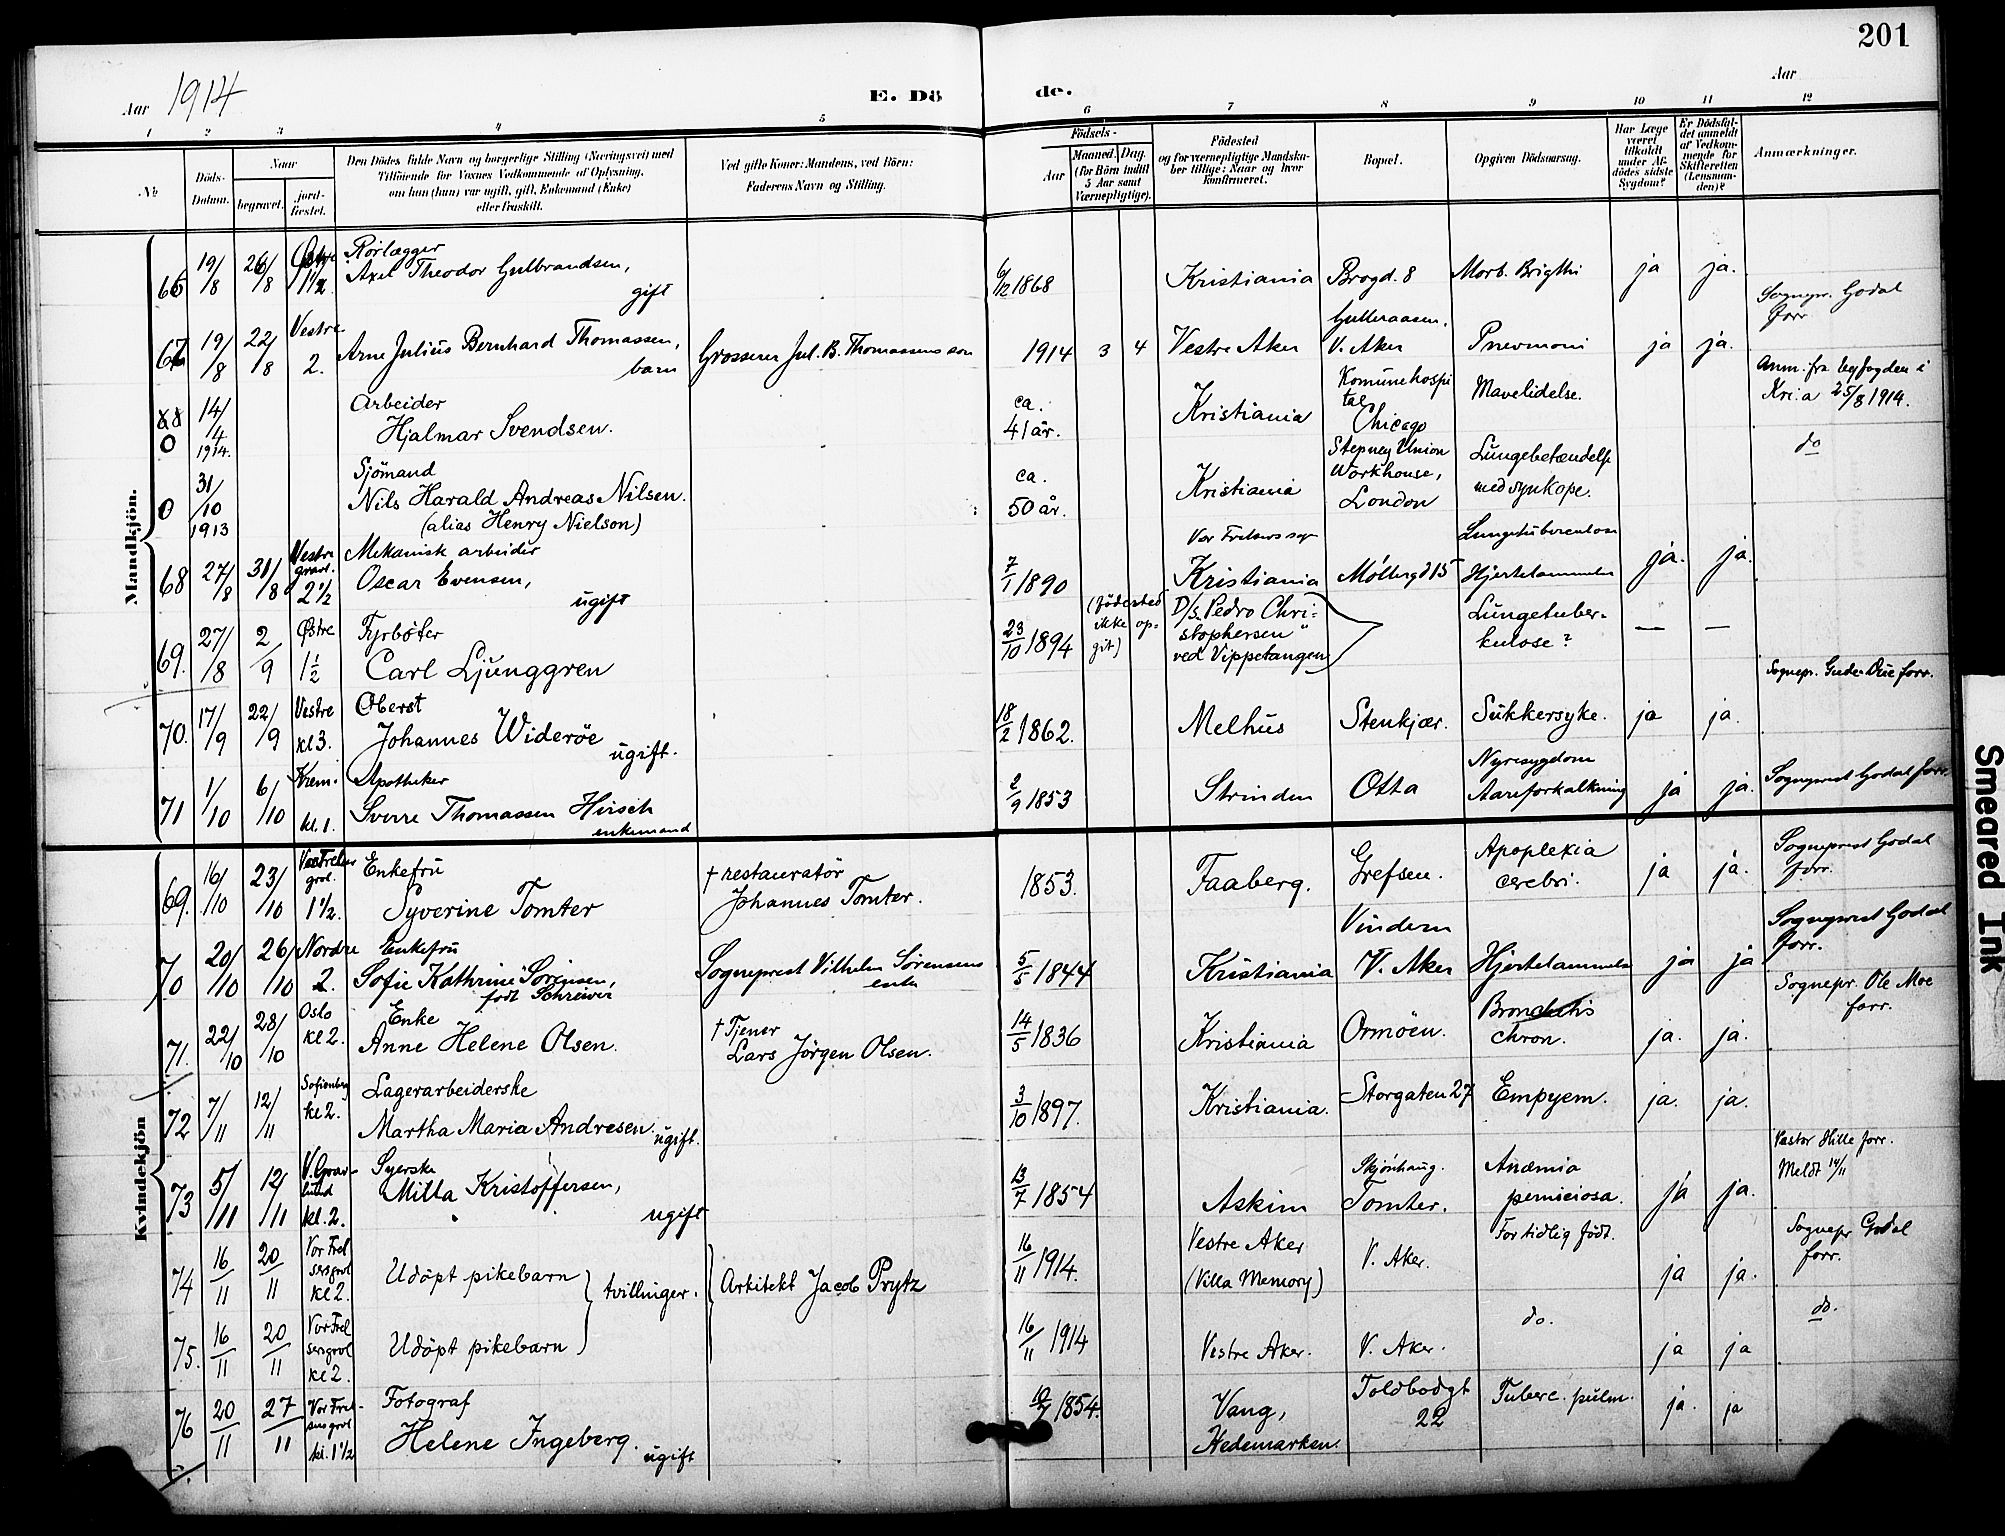 201
Aar 1914
E. Dö
de.
Aar
1 2 3 4 5 6 7 8 9 10 11 12
No
Döds-Datum.
Naar
begravet.
jord-fæstet.
Den Dödes fulde Navn og borgerlige Stilling (Næringsvei) med
Tilföiende for Voxnes Vedkommende af Oplysning,
om han (hun) var ugift, gift, Enkemand (Enke)
eller fraskilt.
Ved gifte Koner: Mandens, ved Börn:
Faderens Navn og Stilling.
Födsels-
Aar
Maaned. Dag.
(for Börn indtil
5 Aar samt
Værnepligtige).
Födested
og for værnepligtige Mandska-
ber tillige: Naar og hvor
konfirmeret.
Bopæl.
Opgiven Dödsaarsag.
Har Læge
været
tilkaldt
under Af-
dödes sidste
Sygdom?
Er Dödsfal-
det anmeldt
af Vedkom-
mende for
Skifteretten
(Lensman-
den)?
Anmærkninger.
Mandkjön.
66 19/8 26/8 Østre 1 1/2 Rörlægger
Axel Theodor Gulbrandsen,
gift
6/12 1868 Kristiania Brogd. 8 Morb. Brigthi ja ja.
67 19/8 22/8 Vestre 2. Arne Julius Bernhard Thomassen,
barn
Grosserer Jul. B. Thomassens son
1914 3 4 Vestre Aker
V. Aker
Pnevmoni ja ja.
Sognepr. Godal
forr
0 14/4 1914. Arbeider
Hjalmar Svendsen.
ca.
41 år.
Kristiania
Komunehospi
tal
Chicago
Mavelidelse.
Anm. fra byfogden i
Kri.a 25/8 1914.
0 31/10 1913 Sjömand
Nils Harald Andreas Nilsen.
(alias Henry Nielson)
ca.
50 år.
Kristiania
Stepney Union
Workhouse,
London
Lungebetændelse
med synkope.
do
68 27/8 31/8 Vestre gravl. 2 1/2 Mekanisk arbeider
Oscar Evensen,
ugift
7/1 1890
Kristiania Möllergd 15
Lungetuberculose
Hjertelammelse
ja. ja.
69. 27/8 2/9 Østre 1 1/2 Fyrböter
Carl Ljunggren
23/10 1894
(födested
ikke op-
git)
D/s. "Pedro Chri-
stophersen"
ved Vippetangen
Lungetuber-
kulose?
— —
70. 17/9 22/9 Vestre kl 3. Oberst
Johannes Wideröe
ugift.
18/2 1862. Melhus Stenkjær. Sukkersyke. ja ja.
Sognepr. Gude-Due forr.
71 1/10 6/10 Krem. kl. 1. Apotheker
Sverre Thomassen Hirsch
enkemand
2/9 1853 Strinden Otta
Nyresygdom
Aareforkalkning
ja ja.
Sogneprest Godal forr.
Kvindekjön
69. 16/10 23/10 Vor Frelser grvl. 1 1/2. Enkefru
Syverine Tomter
† restauratör
Johannes Tomter.
1853. Faaberg. Grefsen.
Apoplexia
cerebri.
ja ja.
Sogneprest Godal
forr.
70 20/10 26/10 Nordre 2. Enkefru
Sofie Kathrine Sörensen,
født Schreiner
Sogneprest Vilhelm Sørensens
enke
5/5 1844 Kristiania
Vindern
V. Aker
Hjertelammelse ja ja
Sogneprest Godal
forr.
71. 22/10 28/10 Oslo kl 2. Enke
Anne Helene Olsen.
† Tjener
Lars Jörgen Olsen.
14/5 1836 Kristiania Ormöen.
Bronchitis
chron.
ja. ja.
Sognepr. Ole Moe
forr.
72 7/11 12/11 Sofienberg kl 2. Lagerarbeiderske
Martha Maria Andresen.
ugift.
3/10 1897. Kristiania. Storgaten 27 Empyem. ja. ja.
73 5/11 12/11 V. Grav-lund kl. 2. Syerske
Milla Kristoffersen,
ugift
13/7 1854 Askim
Skjönhaug.
Tomter.
Anæmia
perniciosa.
ja ja.
Pastor Hille forr.
Meldt 14/11
74 16/11 20/11 Vor Frel sersgrvl kl 2. Udöpt pikebarn
tvillinger.
Arkitekt Jacob Prytz
16/11 1914. Vestre Aker
(Villa Memory)
V. Aker.
For tidlig födt.
ja ja.
Sognepr Godal
forr.
75. 16/11 20/11 Vor Frel sersgrvl kl 2. Udöpt pikebarn
16/11 1914 Vestre Aker. V. Aker. do. ja ja
do.
76 20/11 27/11 Vor Frel- sersgrvl kl. 1 1/2 Fotograf
Helene Ingeberg.
ugift
10/7 1854. Vang,
Hedemarken.
Toldbodgt
22
Tuberc. pulm. ja. ja
Smeared Ink